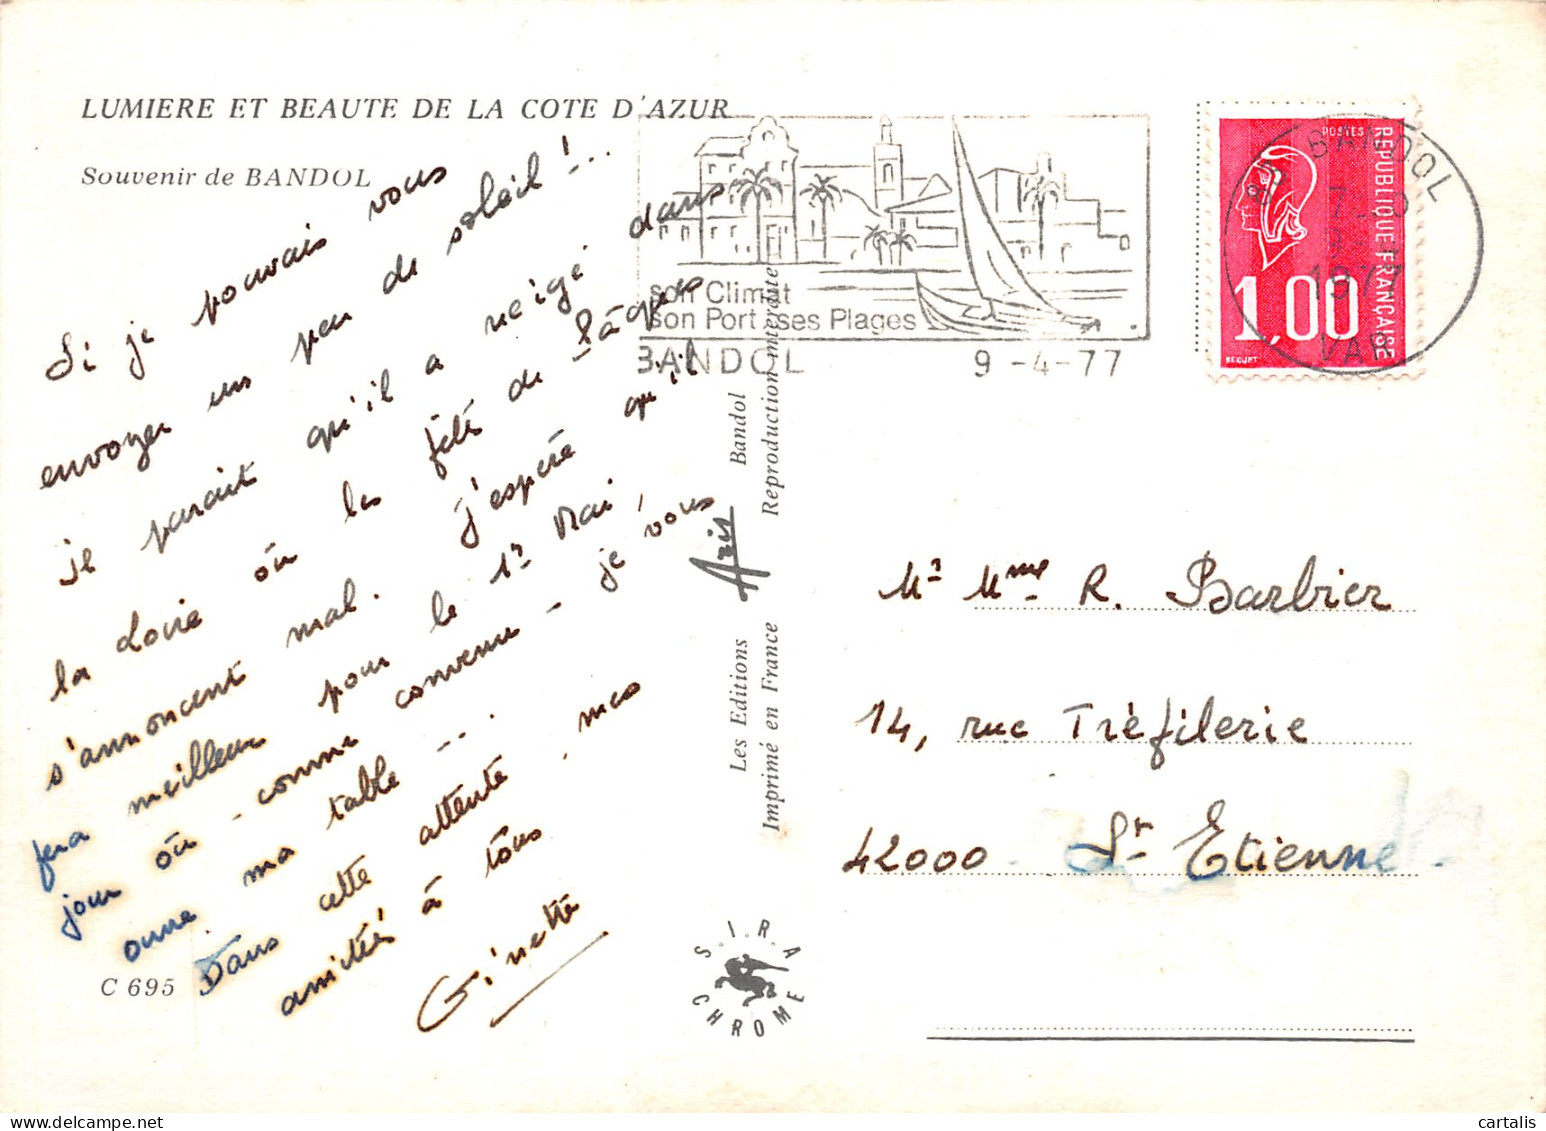 LUMIERE ET BEAUTE DE LA COTE D'AZUR
Souvenir de BANDOL
Si je pouvais vous
envoyer un peu de soleil !...
il parait qu'il a neigé dans
la Loire où les fêtes de Pâques
s'annoncent mal. J'espère qu'il
fera meilleur pour le 1er Mai
jour où - comme convenu - je vous
ma table ...
Dans cette attente, mes
amitiés à tous
Ginette
C 695
son Climat
son Port ses Plages
BANDOL
9-4-77
POSTES
REPUBLIQUE FRANÇAISE
1,00
BEQUET
BANDOL
1977
VAR
Les Editions Aris Bandol
Imprimé en France Reproduction interdite
Mr Mme R. Barbier
14, rue Tréfilerie
42000 St Etienne.
S.I.R.A
CHROME
www.delcampe.net
cartalis